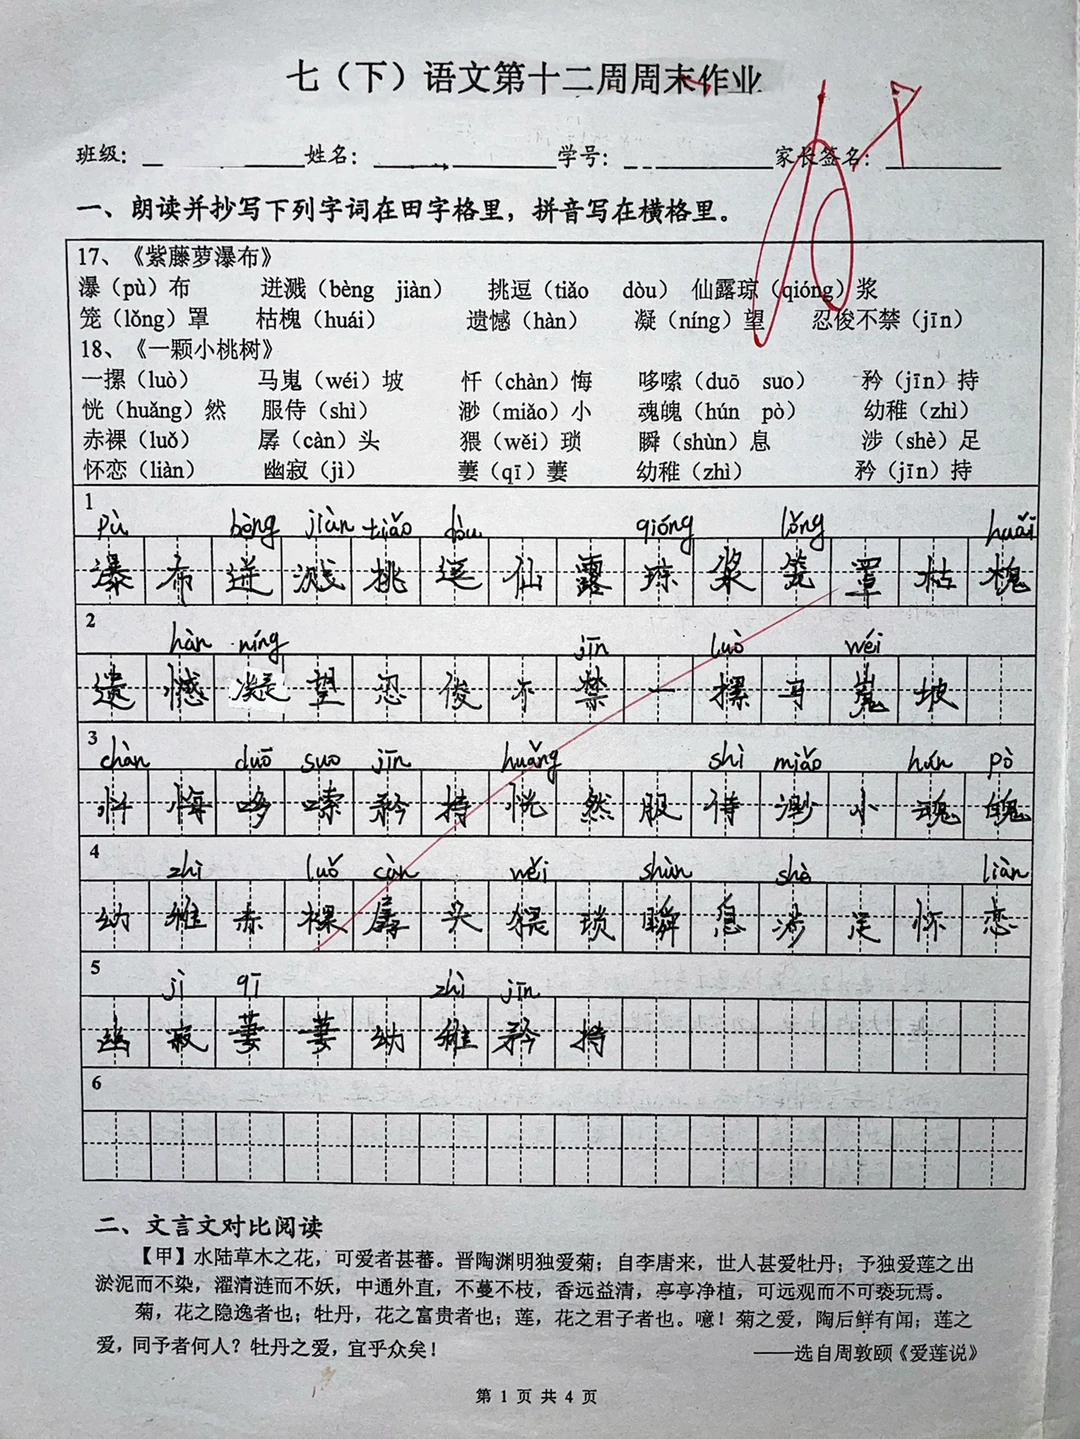 七（下）语文第十二周周末作业
班级：
姓名：
学号：
家长签名：
一、朗读并抄写下列字词在田字格里，拼音写在横格里。
17、《紫藤萝瀑布》
瀑（pù）布 迸溅（bèng jiàn） 挑逗（tiǎo dòu） 仙露琼（qióng）浆
笼（lǒng）罩 枯槐（huái） 遗憾（hàn） 凝（níng）望 忍俊不禁（jīn）
18、《一颗小桃树》
一摞（luò） 马嵬（wéi）坡 忏（chàn）悔 哆嗦（duō suo） 矜（jīn）持
恍（huǎng）然 服侍（shì） 渺（miǎo）小 魂魄（hún pò） 幼稚（zhì）
赤裸（luǒ） 孱（càn）头 猥（wěi）琐 瞬（shùn）息 涉（shè）足
怀恋（liàn） 幽寂（jì） 萋（qī）萋 幼稚（zhì） 矜（jīn）持
1
pù bèng jiàn tiǎo dòu qióng lǒng huái
瀑布迸溅挑逗仙露琼浆笼罩枯槐
2
hàn níng jīn luò wéi
遗憾凝望忍俊不禁一摞马嵬坡
3
chàn duō suo jīn huǎng shì miǎo hún pò
忏悔哆嗦矜持恍然服侍渺小魂魄
4
zhì luǒ càn wěi shùn shè liàn
幼稚赤裸孱头猥琐瞬息涉足怀恋
5
jì qī zhì jīn
幽寂萋萋幼稚矜持
6
二、文言文对比阅读
【甲】水陆草木之花，可爱者甚蕃。晋陶渊明独爱菊；自李唐来，世人甚爱牡丹；予独爱莲之出
淤泥而不染，濯清涟而不妖，中通外直，不蔓不枝，香远益清，亭亭净植，可远观而不可亵玩焉。
菊，花之隐逸者也；牡丹，花之富贵者也；莲，花之君子者也。噫！菊之爱，陶后鲜有闻；莲之
爱，同予者何人？牡丹之爱，宜乎众矣！
——选自周敦颐《爱莲说》
第 1 页 共 4 页